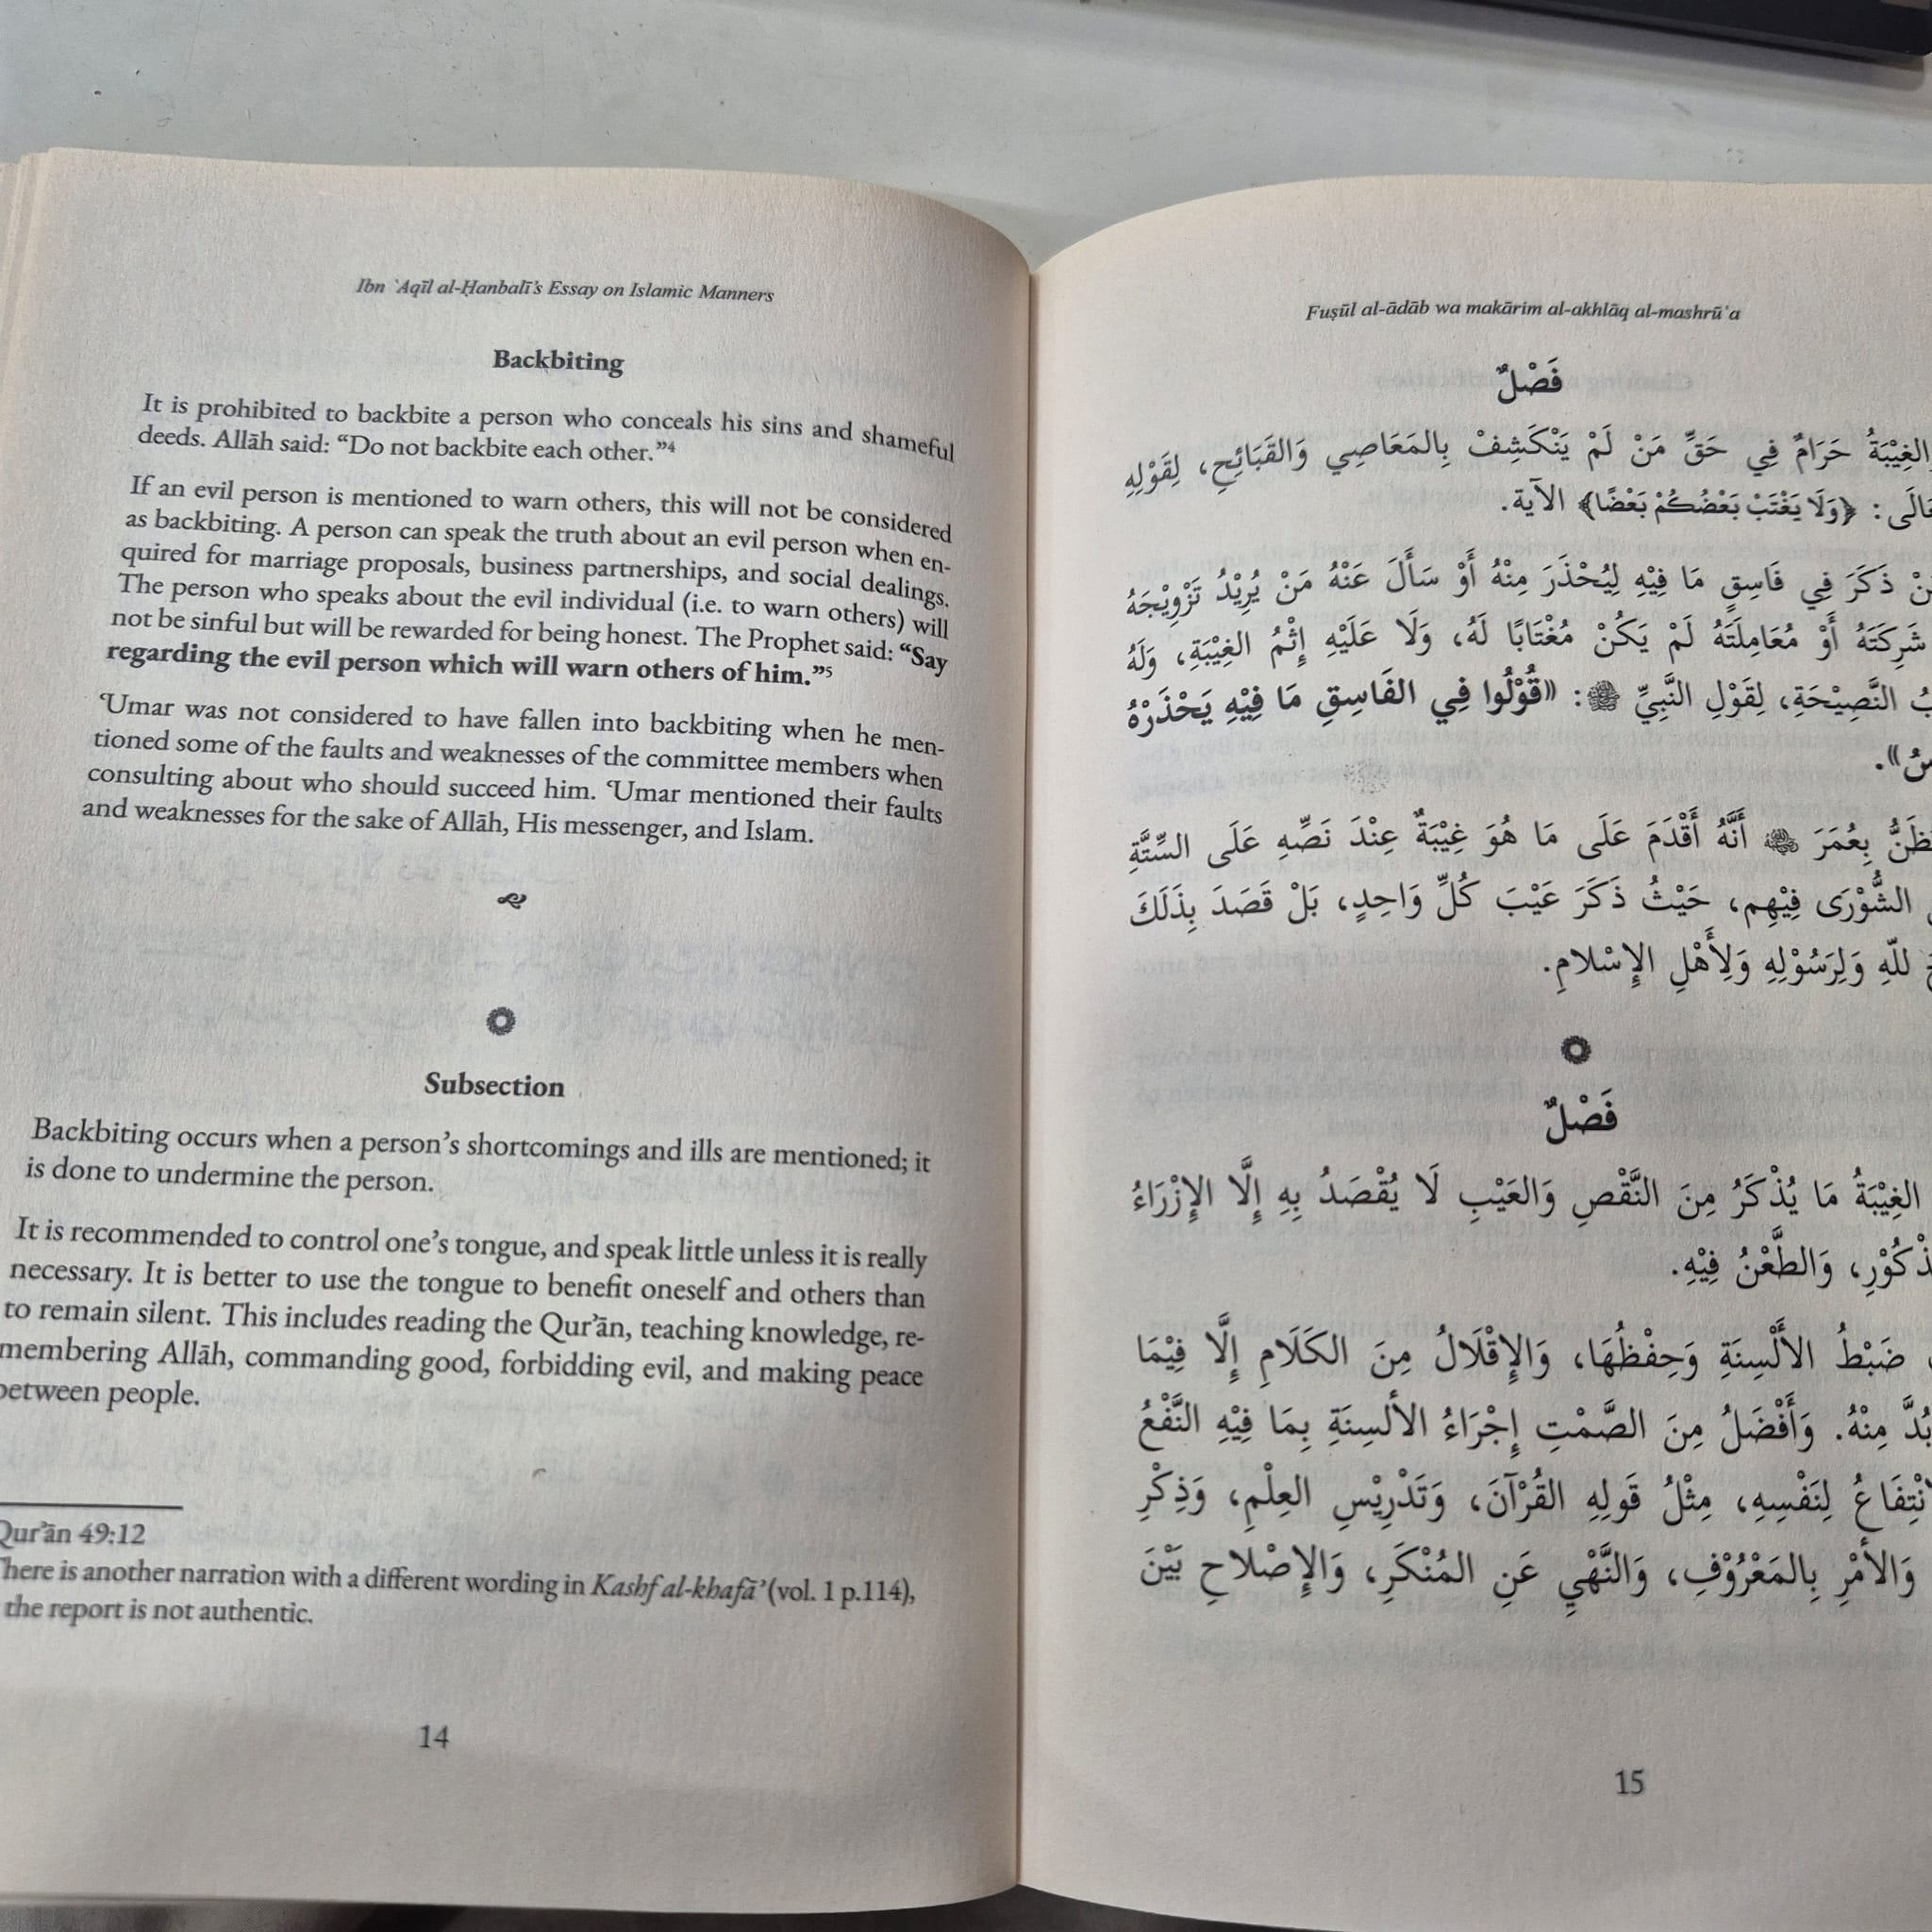 Ibn ʿAqīl al-Ḥanbalī's Essay on Islamic Manners
Backbiting
It is prohibited to backbite a person who conceals his sins and shameful
deeds. Allāh said: “Do not backbite each other.”4
If an evil person is mentioned to warn others, this will not be considered
as backbiting. A person can speak the truth about an evil person when en-
quired for marriage proposals, business partnerships, and social dealings.
The person who speaks about the evil individual (i.e. to warn others) will
not be sinful but will be rewarded for being honest. The Prophet said: “Say
regarding the evil person which will warn others of him.”5
ʿUmar was not considered to have fallen into backbiting when he men-
tioned some of the faults and weaknesses of the committee members when
consulting about who should succeed him. ʿUmar mentioned their faults
and weaknesses for the sake of Allāh, His messenger, and Islam.
Subsection
Backbiting occurs when a person's shortcomings and ills are mentioned; it
is done to undermine the person.
It is recommended to control one's tongue, and speak little unless it is really
necessary. It is better to use the tongue to benefit oneself and others than
to remain silent. This includes reading the Qur'ān, teaching knowledge, re-
membering Allāh, commanding good, forbidding evil, and making peace
between people.
Qur'ān 49:12
here is another narration with a different wording in Kashf al-khafā' (vol. 1 p.114),
the report is not authentic.
14
Fuṣūl al-ādāb wa makārim al-akhlāq al-mashrūʿa
فَصْلٌ
الغِيْبَةُ حَرَامٌ فِي حَقِّ مَنْ لَمْ يَنْكَشِفْ بِالمَعَاصِي وَالقَبَائِحِ، لِقَوْلِهِ
﴿وَلَا يَغْتَبْ بَعْضُكُمْ بَعْضًا﴾ الآية.
ذَكَرَ فِي فَاسِقٍ مَا فِيْهِ لِيُحْذَرَ مِنْهُ أَوْ سَأَلَ عَنْهُ مَنْ يُرِيْدُ تَزْوِيْجَهُ
شَرِكَتَهُ أَوْ مُعَامِلَتَهُ لَمْ يَكُنْ مُغْتَابًا لَهُ، وَلَا عَلَيْهِ إِثْمُ الغِيْبَةِ، وَلَهُ
النَّصِيْحَةِ، لِقَوْلِ النَّبِيِّ ﷺ: «قُوْلُوا فِي الفَاسِقِ مَا فِيْهِ يَحْذَرْهُ
بِعُمَرَ أَنَّهُ أَقْدَمَ عَلَى مَا هُوَ غِيْبَةٌ عِنْدَ نَصِّهِ عَلَى السِّتَّةِ
الشُّوْرَى فِيْهِم، حَيْثُ ذَكَرَ عَيْبَ كُلِّ وَاحِدٍ، بَلْ قَصَدَ بِذَلَكَ
للّهِ وَلِرَسُوْلِهِ وَلِأَهْلِ الإِسْلامِ.
فَصْلٌ
الغِيْبَةُ مَا يُذْكَرُ مِنَ النَّقْصِ وَالعَيْبِ لَا يُقْصَدُ بِهِ إِلَّا الإِزْرَاءُ
وَالطَّعْنُ فِيْهِ.
ضَبْطُ الأَلْسِنَةِ وَحِفْظُهَا، وَالإِقْلَالُ مِنَ الكَلَامِ إِلَّا فِيْمَا
مِنْهُ. وَأَفْضَلُ مِنَ الصَّمْتِ إِجْرَاءُ الألسِنَةِ بِمَا فِيْهِ النَّفْعُ
لِنَفْسِهِ، مِثْلُ قَولِهِ القُرْآنَ، وَتَدْرِيْسِ العِلْمِ، وَذِكْرِ
وَالأَمْرِ بِالمَعْرُوْفِ، وَالنَّهْيِ عَنِ المُنْكَرِ، وَالإِصْلاحِ بَيْنَ
15